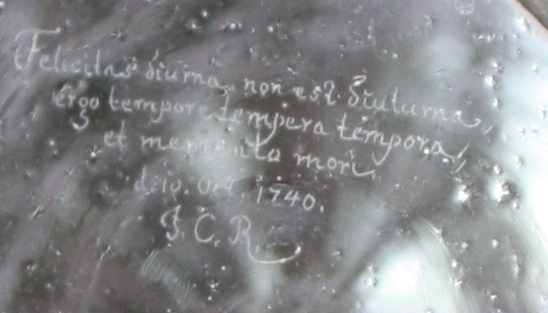 Felicitas diurna non est diuturna,
ergo tempore tempera tempora,
et memento mori,
d. 19. Oct. 1740.
J. C. R